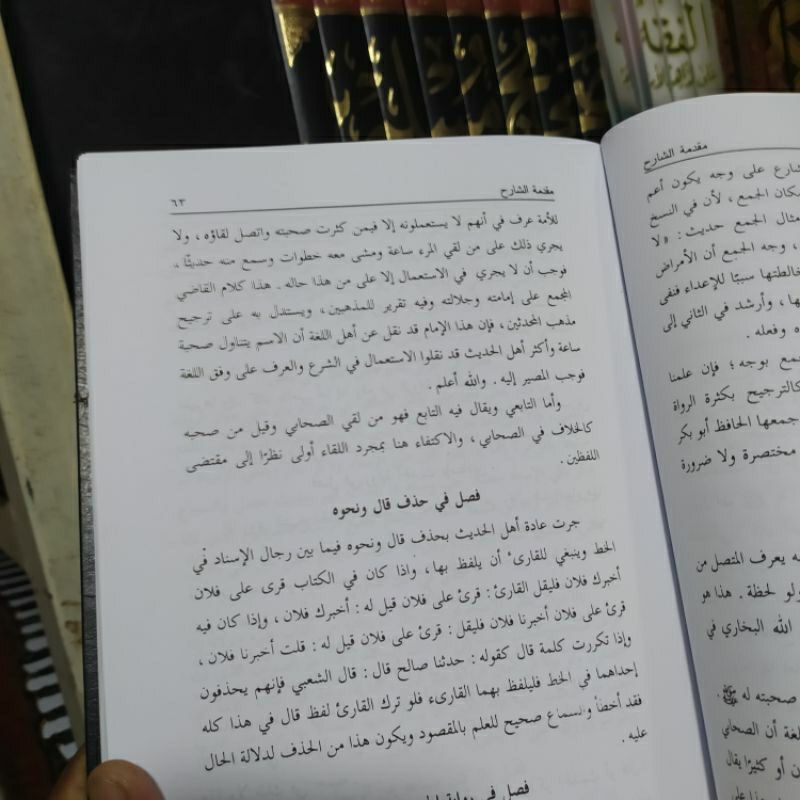 الفقه
مقدمة الشارح
٦٣
للأمة عرف في أنهم لا يستعملونه إلا فيمن كثرت صحبته واتصل لقاؤه ، ولا
يجري ذلك على من لقي المرء ساعة ومشى معه خطوات وسمع منه حديثًا ،
فوجب أن لا يجري في الاستعمال إلا على من هذا حاله . هذا كلام القاضي
المجمع على إمامته وجلالته وفيه تقرير للمذهبين ، ويستدل به على ترجيح
مذهب المحدثين ، فإن هذا الإمام قد نقل عن أهل اللغة أن الاسم يتناول صحبة
ساعة وأكثر أهل الحديث قد نقلوا الاستعمال في الشرع والعرف على وفق اللغة
فوجب المصير إليه . والله أعلم .
وأما التابعي ويقال فيه التابع فهو من لقي الصحابي وقيل من صحبه
كالخلاف في الصحابي ، والاكتفاء هنا بمجرد اللقاء أولى نظرًا إلى مقتضى
اللفظين .
فصل في حذف قال ونحوه
جرت عادة أهل الحديث بحذف قال ونحوه فيما بين رجال الإسناد في
الخط وينبغي للقارئ أن يلفظ بها، وإذا كان في الكتاب قرى على فلان
أخبرك فلان فليقل القارئ : قرئ على فلان قيل له : أخبرك فلان ، وإذا كان فيه
قرئ على فلان أخبرنا فلان فليقل : قرئ على فلان قيل له : قلت أخبرنا فلان ،
وإذا تكررت كلمة قال كقوله : حدثنا صالح قال : قال الشعبي فإنهم يحذفون
إحداهما في الخط فليلفظ بهما القارىء فلو ترك القارئ لفظ قال في هذا كله
فقد أخطأ والسماع صحيح للعلم بالمقصود ويكون هذا من الحذف لدلالة الحال
عليه .
فصل في
مقدمة الشارح
شارع على وجه يكون أعم
مكان الجمع ، لأن في النسخ
مثال الجمع حديث : « لا
، وجه الجمع أن الأمراض
خالطتها سببًا للإعداء فنفى
ها ، وأرشد في الثاني إلى
ه وفعله .
مع بوجه ؛ فإن علمنا
كالترجيح بكثرة الرواة
جمعها الحافظ أبو بكر
مختصرة ولا ضرورة
ه يعرف المتصل من
ولو لحظة . هذا هو
الله البخاري في
صحبته له ﷺ .
لغة أن الصحابي
ن أو كثيرًا يقال